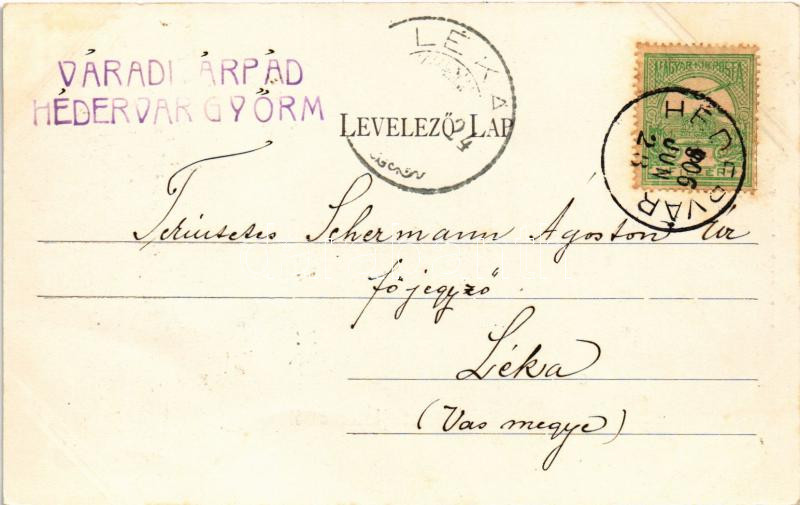 VÁRADI ÁRPÁD
HÉDERVÁR GYŐRM
LÉKA
24
LEVELEZŐ-LAP
MAGYAR KIR. POSTA
HÉDERVÁR
906
JUN
23
Tekintetes Schermann Ágoston Úr
főjegyző
Léka
(Vas megye)